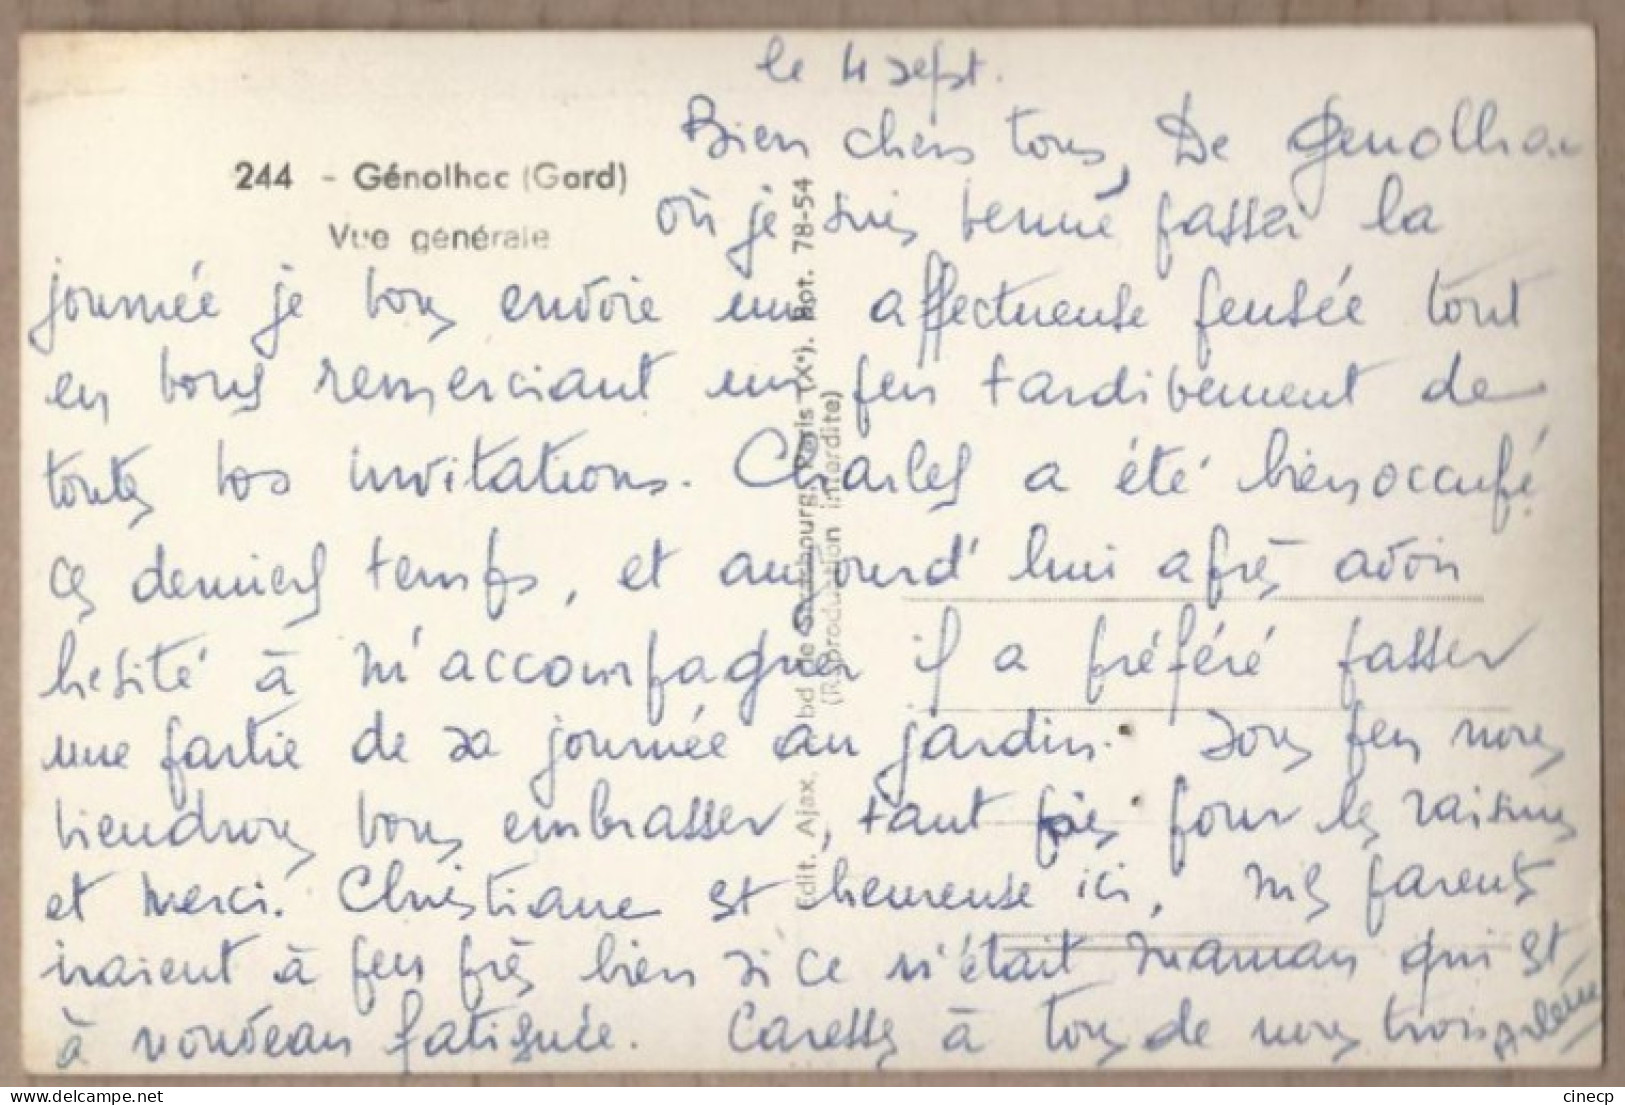 le 4 sept.
244 - Génolhac (Gard)
Vue générale
Bien chers tous, De Genolhac
où je suis venue passer la
journée je vous envoie une affectueuse pensée tout
en vous remerciant un peu tardivement de
toutes vos invitations. Charles a été bien occupé
ces derniers temps, et aujourd'hui après avoir
hesité à m'accompagner il a préféré passer
une partie de sa journée au jardin. Sous peu nous
viendrons vous embrasser, tant pis pour les raisins
et merci. Christiane est heureuse ici, mes parents
iraient à peu près bien si ce n'était maman qui est
à nouveau fatiguée. Caresses à tous de nous trois Arlette
Edit. Ajax, bd de Strasbourg, Paris (Xe). Rot. 78-54
(Reproduction interdite)
cinecp